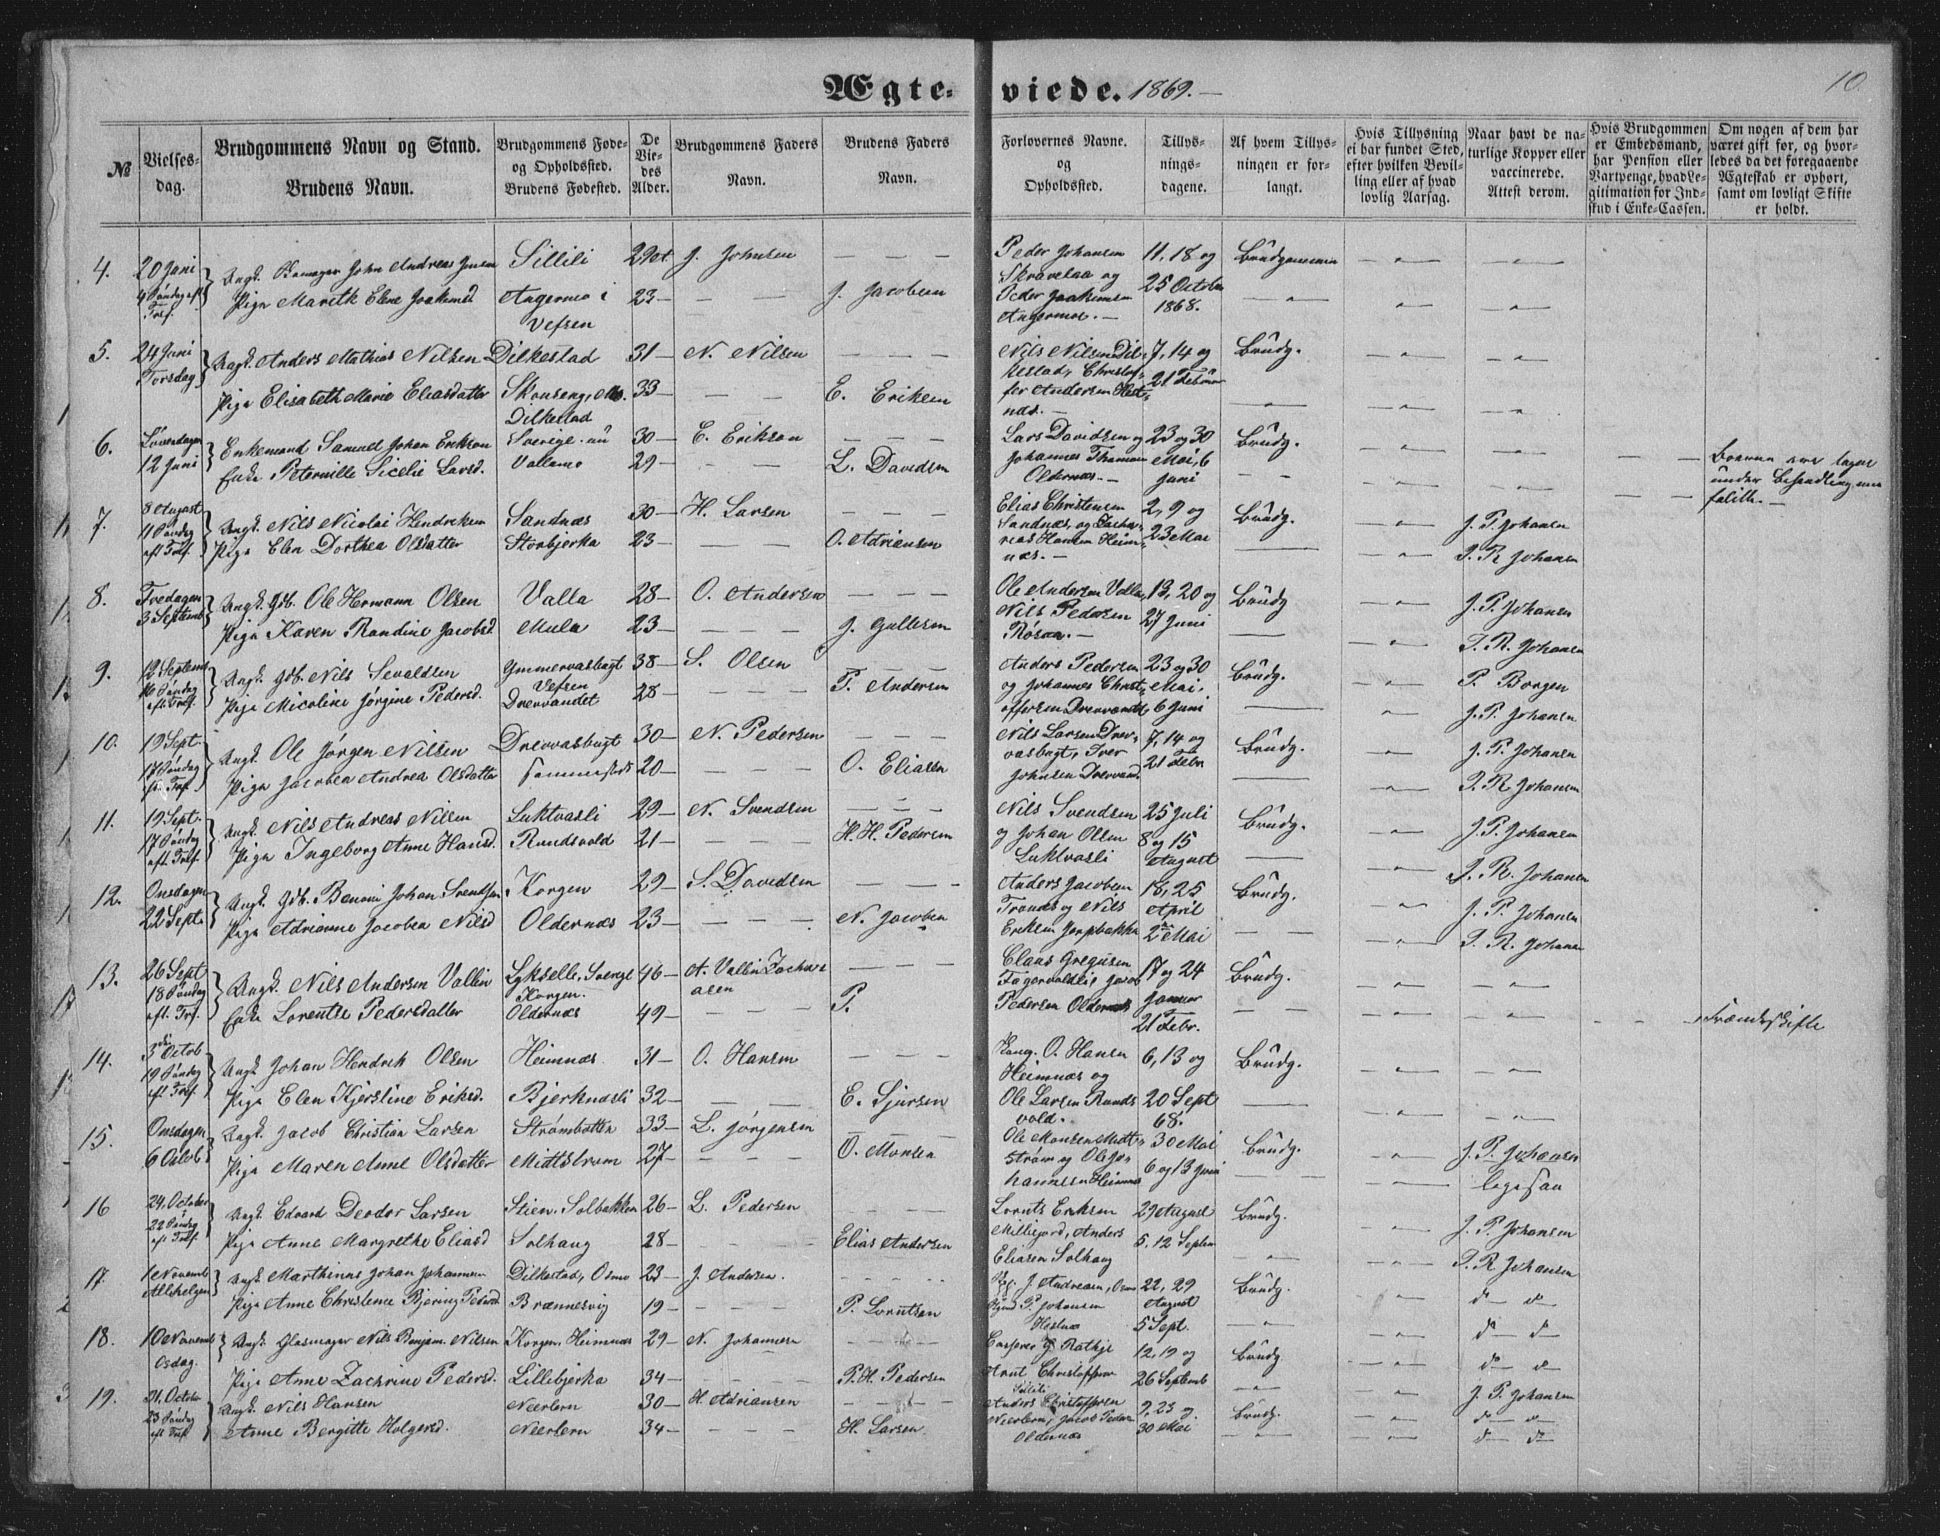 Ægte-viede. 1869.—
10
№
Vielses-dag.
Brudgommens Navn og Stand.
Brudens Navn.
Brudgommens Føde- og Opholdssted.
Brudens Fødested.
De Vie-des Alder.
Brudgommens Faders Navn.
Brudens Faders Navn.
Forlovernes Navne. og Opholdssted.
Tillys-nings-dagene.
Af hvem Tillys-ningen er for-langt.
Hvis Tillysning ei har fundet Sted, efter hvilken Bevil-ling eller af hvad lovlig Aarsag.
Naar havt de na-turlige Kopper eller vaccinerede. Attest derom.
Hvis Brudgommen er Embedsmand, har Pension eller Vartpenge, hvad Le-gitimation for Ind-skud i Enke-Cassen.
Om nogen af dem har været gift før, og hvor-ledes da det foregaaende Ægteskab er ophørt, samt om lovligt Skifte er holdt.
4. 20 Juni 4 Søndag eft Tref. Ungk. John Andreas Sillili 29 J. Johnsen — — — Peder Johansen Skravelaa og 11, 18 og 25 October 1868. Brudgommen
Pige Marith Elene Joakimsd Angermo i Vefsen 23 — — — J. Jacobsen Peder Joakimsen Angermoe. —
5. 24 Juni Torsdag Ungk. Anders Mathias Nilsen Dilkestad 31 — N. Nilsen — — — Nils Nilsen Dil-kestad, Christof- 7, 14 og 21 Februar Brudg.
Pige Elisabeth Marie Eliasdatter Skonseng, Mo. Dilkestad 33 — — — E. Eriksen fer Andersen Hest-næs. —
6. 12 Juni Enkemand Samuel Johan Erikson Sverige. nu 30 — E. Erikson — — — Lars Davidsen og 23 og 30 Mai, 6 Juni Brudg.
Enke Peternille Sicelie Larsd. Vallamo 29 — — — L. Davidsen Johannes Thomasen Oldernæs. — under Behandling
7. 8 August 11 Søndag eft Tref. Ungk. Nils Nicolai Hendriksen Sandnæs 30 — H. Larsen — — — Elias Christensen Sandnæs, og Zacha- 2, 9 og 23 Mai Brudg. J. P. Johansen
Pige Elen Dorthea Olsdatter Storbjerka 23 — — — O. Adriansen rias Hansen Heim-næs. — P. R. Johansen
8. Fredagen 3 Septemb Ungk. Gdb. Ole Hermann Olsen Valla 28 — O. Andersen — — — Ole Andersen Valla, 13, 20 og 27 Juni Brudg J. P. Johansen
Pige Karen Randine Jacobsd Mula 23 — — — J. Gullesen Nils Pedersen Røsaa. — P. R. Johansen
9. 12 Septemb 16 Søndag eft Tref. Ungk. Gdb. Nils Sevaldsen Ymmervasbugt Vefsen 38 — S. Olsen — — — Anders Pedersen 23 og 30 Mai, 6 Juni Brudg. P. Borgen
Pige Nicoline Jørgine Pedersd. Drevvandet 28 — — — P. Andersen og Johannes Christ-offersen Drevvandet J. P. Johansen
10. 19 Sept. 17 Søndag eft Tref Ungk. Ole Jørgen Nilsen Drevvasbugt 30 — N. Pedersen — — — Nils Larsen Drev-vasbugt, Iver 7, 14 og 21 Febr Brudg. J. P. Johansen
Pige Jacobea Andrea Olsdatter sammesteds 20 — — — O. Eliasen Johnsen Drevvand. P. R. Johansen
11. 19 Sept. 17 Søndag eft. Tref. Ungk. Nils Andreas Nilsen Luktvasli 29 — N. Svendsen — — — Nils Svendsen 25 Juli 8 og 15 August Brudg. J. P. Johansen
Pige Ingeborg Anne Hansd. Rundsvold 21 — — — H. H. Pedersen og Johan Olsen Luktvasli P. R. Johansen
12. Onsdagen 22 Sept. Ungk. Gdb. Benoni Johan Svendsen Korgen 29 — S. Davidsen — — — Anders Jacobsen 18, 25 April 2 Mai Brudg. J. P. Johansen
Pige Adrianne Jacobea Nilsd Oldernæs 23 — — — N. Jacobsen Trands og Nils Eriksen Jerpbakka P. R. Johansen
13. 26 Sept 18 Søndag eft. Tref. Ungk. Nils Andersen Vallin Lyksele. Sverge Korgen. 46 — A. Vallin Zacharasen — — — Claus Gregusen 17 og 24 Januar 21 Febr. Brudg.
Enke Lorentse Pedersdatter Oldernæs 49 — — — P. Fagervoldli, Jacob Pedersen Oldernæs Frændeskifte
14. 3 Octob 19 Søndag eft Tref. Ungk Johan Hendrik Olsen Heimnæs 31 — O. Hansen — — — O. Hansen Heimnæs og 6, 13 og 20 Sept 68. Brudg.
Pige Elen Kjerstine Eriksd. Bjerknæsli 32 — — — E. Sjursen Ole Larsen Runds-vold.
15. Onsdagen 6 Octob. Ungk. Jacob Christian Larsen Strømbotten 33 — L. Jørgensen — — — Ole Monsen Midt- 30 Mai 6 og 13 Juni Brudg. J. P. Johansen
Pige Maren Anne Olsdatter Midtstrøm 27 — — — O. Monsen strøm og Ole Jo-hannesen Heimnæs ligesaa
16 24. October 22 Søndag eft Tref. Ungk. Edvard Deodor Larsen Stien. Solbakken 26 — L. Pedersen — — — Lornts Eriksen 29 August 5. 12 Septem Brudg. J. P. Johansen
Pige Anne Margrethe Eliasd Solhaug 28 — — — Elias Andersen Millifjord, Anders Eliasen Solhaug P. R. Johansen
17 1 Novemb Allehelgen Ungk. Marthinus Johan Johannesen Dilkestad, Osmo 23 — J. Andersen. — — — J. Andreasen, Osmo 22, 29 August 5 Sept. Brudg. d— d—
Pige Anne Christense Bjering Pedersd Brænnesvig 19 — — — P. Lorntsen P. Johansen Hestnæs d— d—
18. 10 Novemb Osdag. Ungk. Glasmager Nils Benjam. Nilsen Korgen, Heimnæs 29 — N. Johannesen — — — G Rathje 12, 19 og 26 Septemb Brudg d— d—
Pige Anne Zachrine Pedersd. Lillebjerka 34 — — — P. H. Pedersen Knut Christoffersen Sillili J. P. Johansen
19. 21. October 23 Søndag eft Tref Ungk. Nils Hansen Neerlern 30 — H. Adriansen — — — Anders Christoffersen 9, 23 og 30 Mai Brudg. d— d—
Anne Bergitte Holgersd. Neerlern 34 — — — H. Larsen. Neerlern, Jacob Peders. Oldernæs d— d—